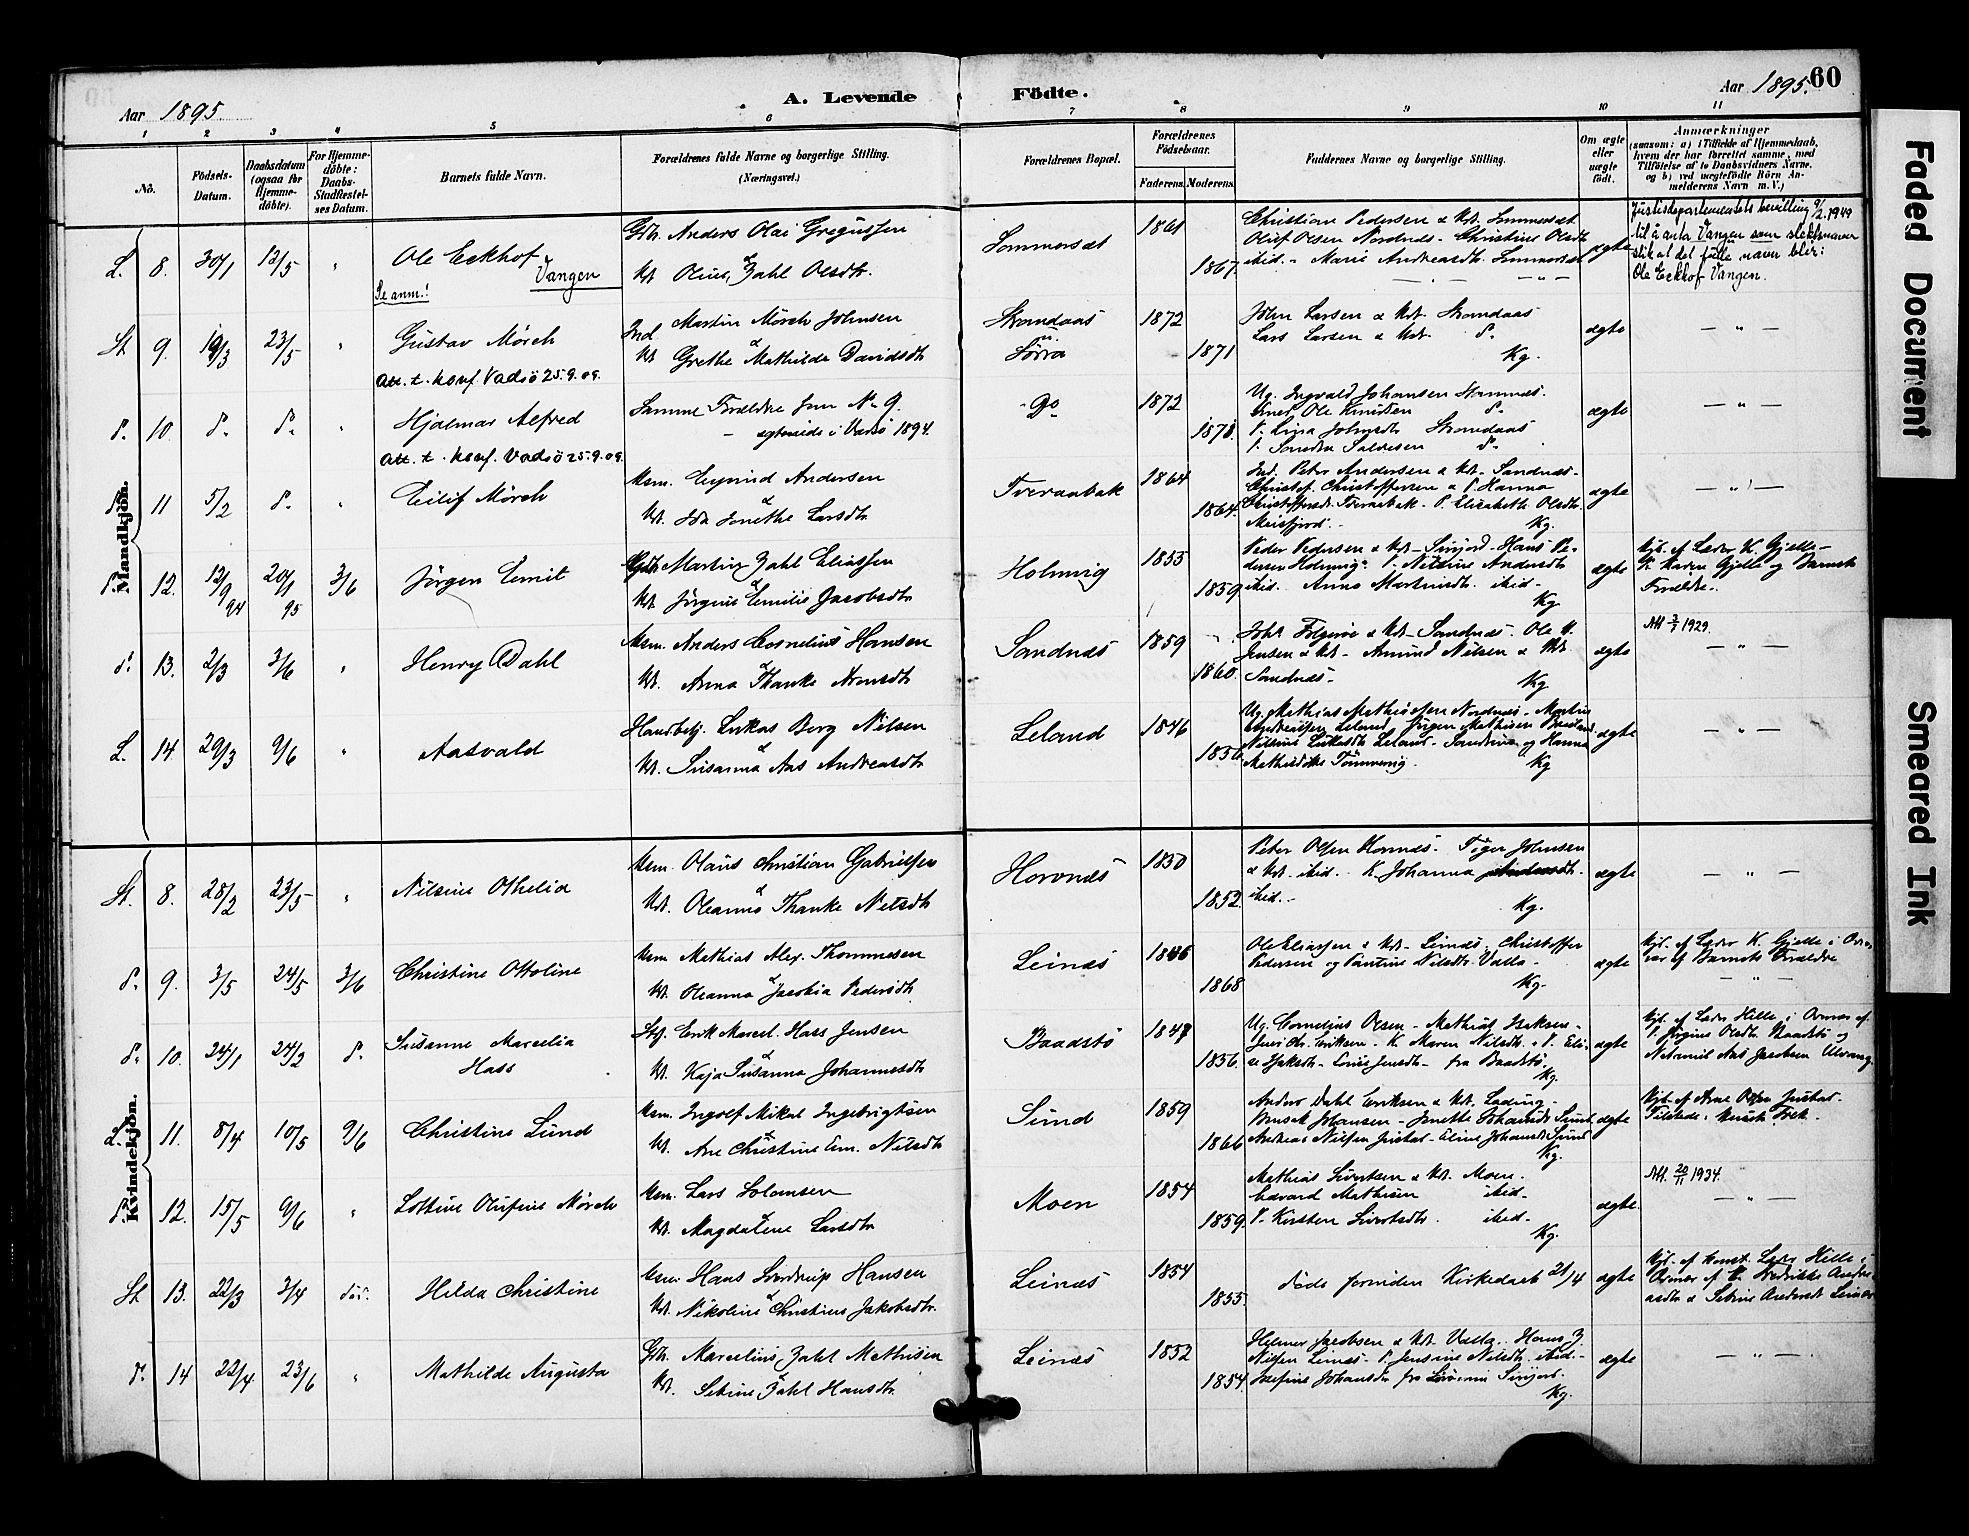 Aar 1895
A. Levende Födte.
Aar 1895. 60
1 2 3 4 5 6 7 8 9 10 11
No.
Födsels-Datum.
Daabsdatum (ogsaa for Hjemme-döbte).
For Hjemme-döbte: Daabs-Stadfæstel-ses Datum.
Barnets fulde Navn.
Forældrenes fulde Navne og borgerlige Stilling.
(Næringsvei.)
Forældrenes Bopæl.
Forældrenes Födselsaar.
Faderens. Moderens.
Faddernes Navne og borgerlige Stilling.
Om ægte eller uægte födt.
Anmærkninger
(saasom: a) i Tilfælde af Hjemmedaab,
hvem der har forrettet samme, med
Tilföielse af to Daabsvidners Navne,
og b) ved uægtefödte Börn An-
melderens Navn m. V.)
Mandkjön.
L. 8. 30/1 12/5 " Ole Eckhof Vangen
Se anm.!
Gbr. Anders Olai Gregussen
Kt. Oline Zahl Olsdtr.
Sommersæt 1861 1867.
Christian Pedersen & Kt. Sommersæt
Oluf Olsen Nordnæs - Christine Olsdtr
ibid. - Marie Andreasdtr. Sommersæt
ægte
Justisdepartementets bevilling 9/2.1949
til å anta Vangen som slektsnavn
slik at det fulle navn blir:
Ole Eckhof Vangen.
St 9. 19/3 23/5 " Gustav Mörch
Att. t. konf. Vadsö 25.9.09.
Ind. Martin Mörch Johnsen
Kt. Grethe & Mathilde Davidsdtr
Strandaas Sörra 1872 1871
John Larsen & Kt. Strandaas
Lars Larsen & Kt. d.
Kg.
ægte — " —
d. 10. d. d. " Hjalmar Alfred
Att. t. konf. Vadsö 25.9.09.
Samme Forældre som No 9.
— ægteviede i Vadsö 1894.
Do 1872 1871.
Ug. Ingvald Johansen
Ole Knudsen d.
P. Lina Johnsdtr Strandaas
P. Sandra d.
ægte — " —
d. 11 5/2 d. " Eilif Mörch
Hsm. Eyvind Andersen
Kt. Ida Jonethe Larsdtr
Tveraabak 1864 1864.
Ind. Peter Andersen & Kt. Sandnæs -
Christof. Christoffersen & P. Hanna
Christoffersdtr Tveraabak - P. Elisabeth Olsdtr.
Meisfjord. - Kg.
ægte — " —
d. 12. 12/9 94 20/1 95 3/6 Jörgen Emil
Gbr. Martin Zahl Eliassen
Kt. Jörgine Emilie Jacobsdtr
Holmvig 1853 1859
Peder Pedersen & Kt. Sinjord - Hans Pe-
dersen Holmvig - P. Nilsine Andersdtr
ibid. Anna Martinsdtr. ibid -
Kg
ægte
Hjd. af Lærer K. Gjelle -
P. Karen Gjelle og Barnets
Forældre.
d. 13. 2/3 3/6 " Henry Dahl
Hsm. Anders Cornelius Hansen
Kt. Anna & Thanke Arontsdtr
Sandnæs 1859 1860.
Joh. & Kt. Sandnæs. Ole
Jensen & Kt. - Amund Nilsen & Kt.
Sandnæs. Kg
ægte
Att 3/7 1929.
— " —
L. 14. 29/3 9/6 " Aasvald
Handbetj. Lukas Berg Nilsen
Kt. Susanna & Aas Andreasdtr
Leland 1846 1850
Ug. Mathias Mathisen Nordnæs - Martin
Andreassen Leland - Jörgen Mathisen
Nilsine Lukasdtr Leland - Sandrine og Hanna
Mathisdtre Tömmervig. Kg
ægte — " —
Kvindekjön.
St. 8. 28/2 23/5 " Nilsine Othelia
Hsm. Olaus Christian Gabrielsen
Kt. Oleanna & Thanke Nelsdtr
Horvnæs 1850 1852.
Peter Olsen Horvnæs - Tiger Johnsen
& Kt. ibid. K. Johanna Andersdtr.
ibid. - Kg.
ægte — " —
d. 9. 3/5 24/5 3/6 Christine Ottoline
Hsm Mathias Alex. Thommesen
Kt. Oleanna & Jacobia Pedersdtr
Leinæs 1868
Ole Eliassen & Kt. Leinæs. Christoffer
Pedersen og Pauline Nilsdtr. Valla -
Kg.
ægte
Hjd. af Lærer K. Gjelle i Over-
vær af Barnets Forældre
— " —
d. 10. 24/1 24/2 d. Susanne Marcelia
Hass
Stg. Erik Marcel. Hass Jensen
Kt. Kaja Susanna Johannesdtr
Baadstö 1847 1856.
Ug. Cornelius Olsen - Mathias Isaksen -
Jens Chr. Eriksen - K. Maren Nilsdtr. - P. Eli-
se Isaksdtr - Louise Jensdtr - fra Baadstö.
Kg.
ægte
Hjd. af Lærer Hille i Overvær af
P. Jörgine Olsdtr. Baadstö og
Aas Jacobsen Ulvang
L. 11. 8/4 10/5 9/6 Christine Lund
Hsm. Ingolf Mikal Ingebrigtsen
Kt. Ane Christine Em. Nilsdtr
Sund 1859 1866
Anders Dahl Eriksen & Kt. Leding -
Johansen - Jonette Johansdtr Sund
Andreas Nilsen Justad - Eline Johansdtr Sund
Kg.
ægte
Hjd. af Arne Olsen Justad.
Tilstede:
d. 12. 15/5 9/6 " Lottine Olufine Mörch
Hsm. Lars Solomsen
Kt. Magdalene Larsdtr
Moen 1854 1859.
Mathias Sivertsen & Kt. Moen.
Edvard Mathisen ibid -
P. Kirsten Sivertsdtr. ibid -
Kg.
ægte.
Att. 20/11 1934.
— " —
St 13. 22/3 3/4 död. Hilda Christine
Hsm. Hans Sverdrup Hansen
Kt. Nikoline & Christine Jakobsdtr.
Leinæs 1854 1855.
döde forinden Kirkedaab 21/4
ægte
Hjd. af Konst. Lærer Hille i
Overvær af Fredrikke Andre-
asdtr & Sebine Leinæs
d. 14 22/4 23/6 " Mathilde Augusta
Gbr. Marcelius Zahl Mathisen
Kt. Sebine & Zahl Hansdtr.
Leinæs 1852 1854.
Hilmar Jacobsen & Kt. Valla. Hans Z
Nilsen Leinæs - P. Jensine Nilsdtr. ibid. -
Josefine Johansdtr fra Sinjord.
Kg.
ægte — " — .
Faded Document
Smeared Ink